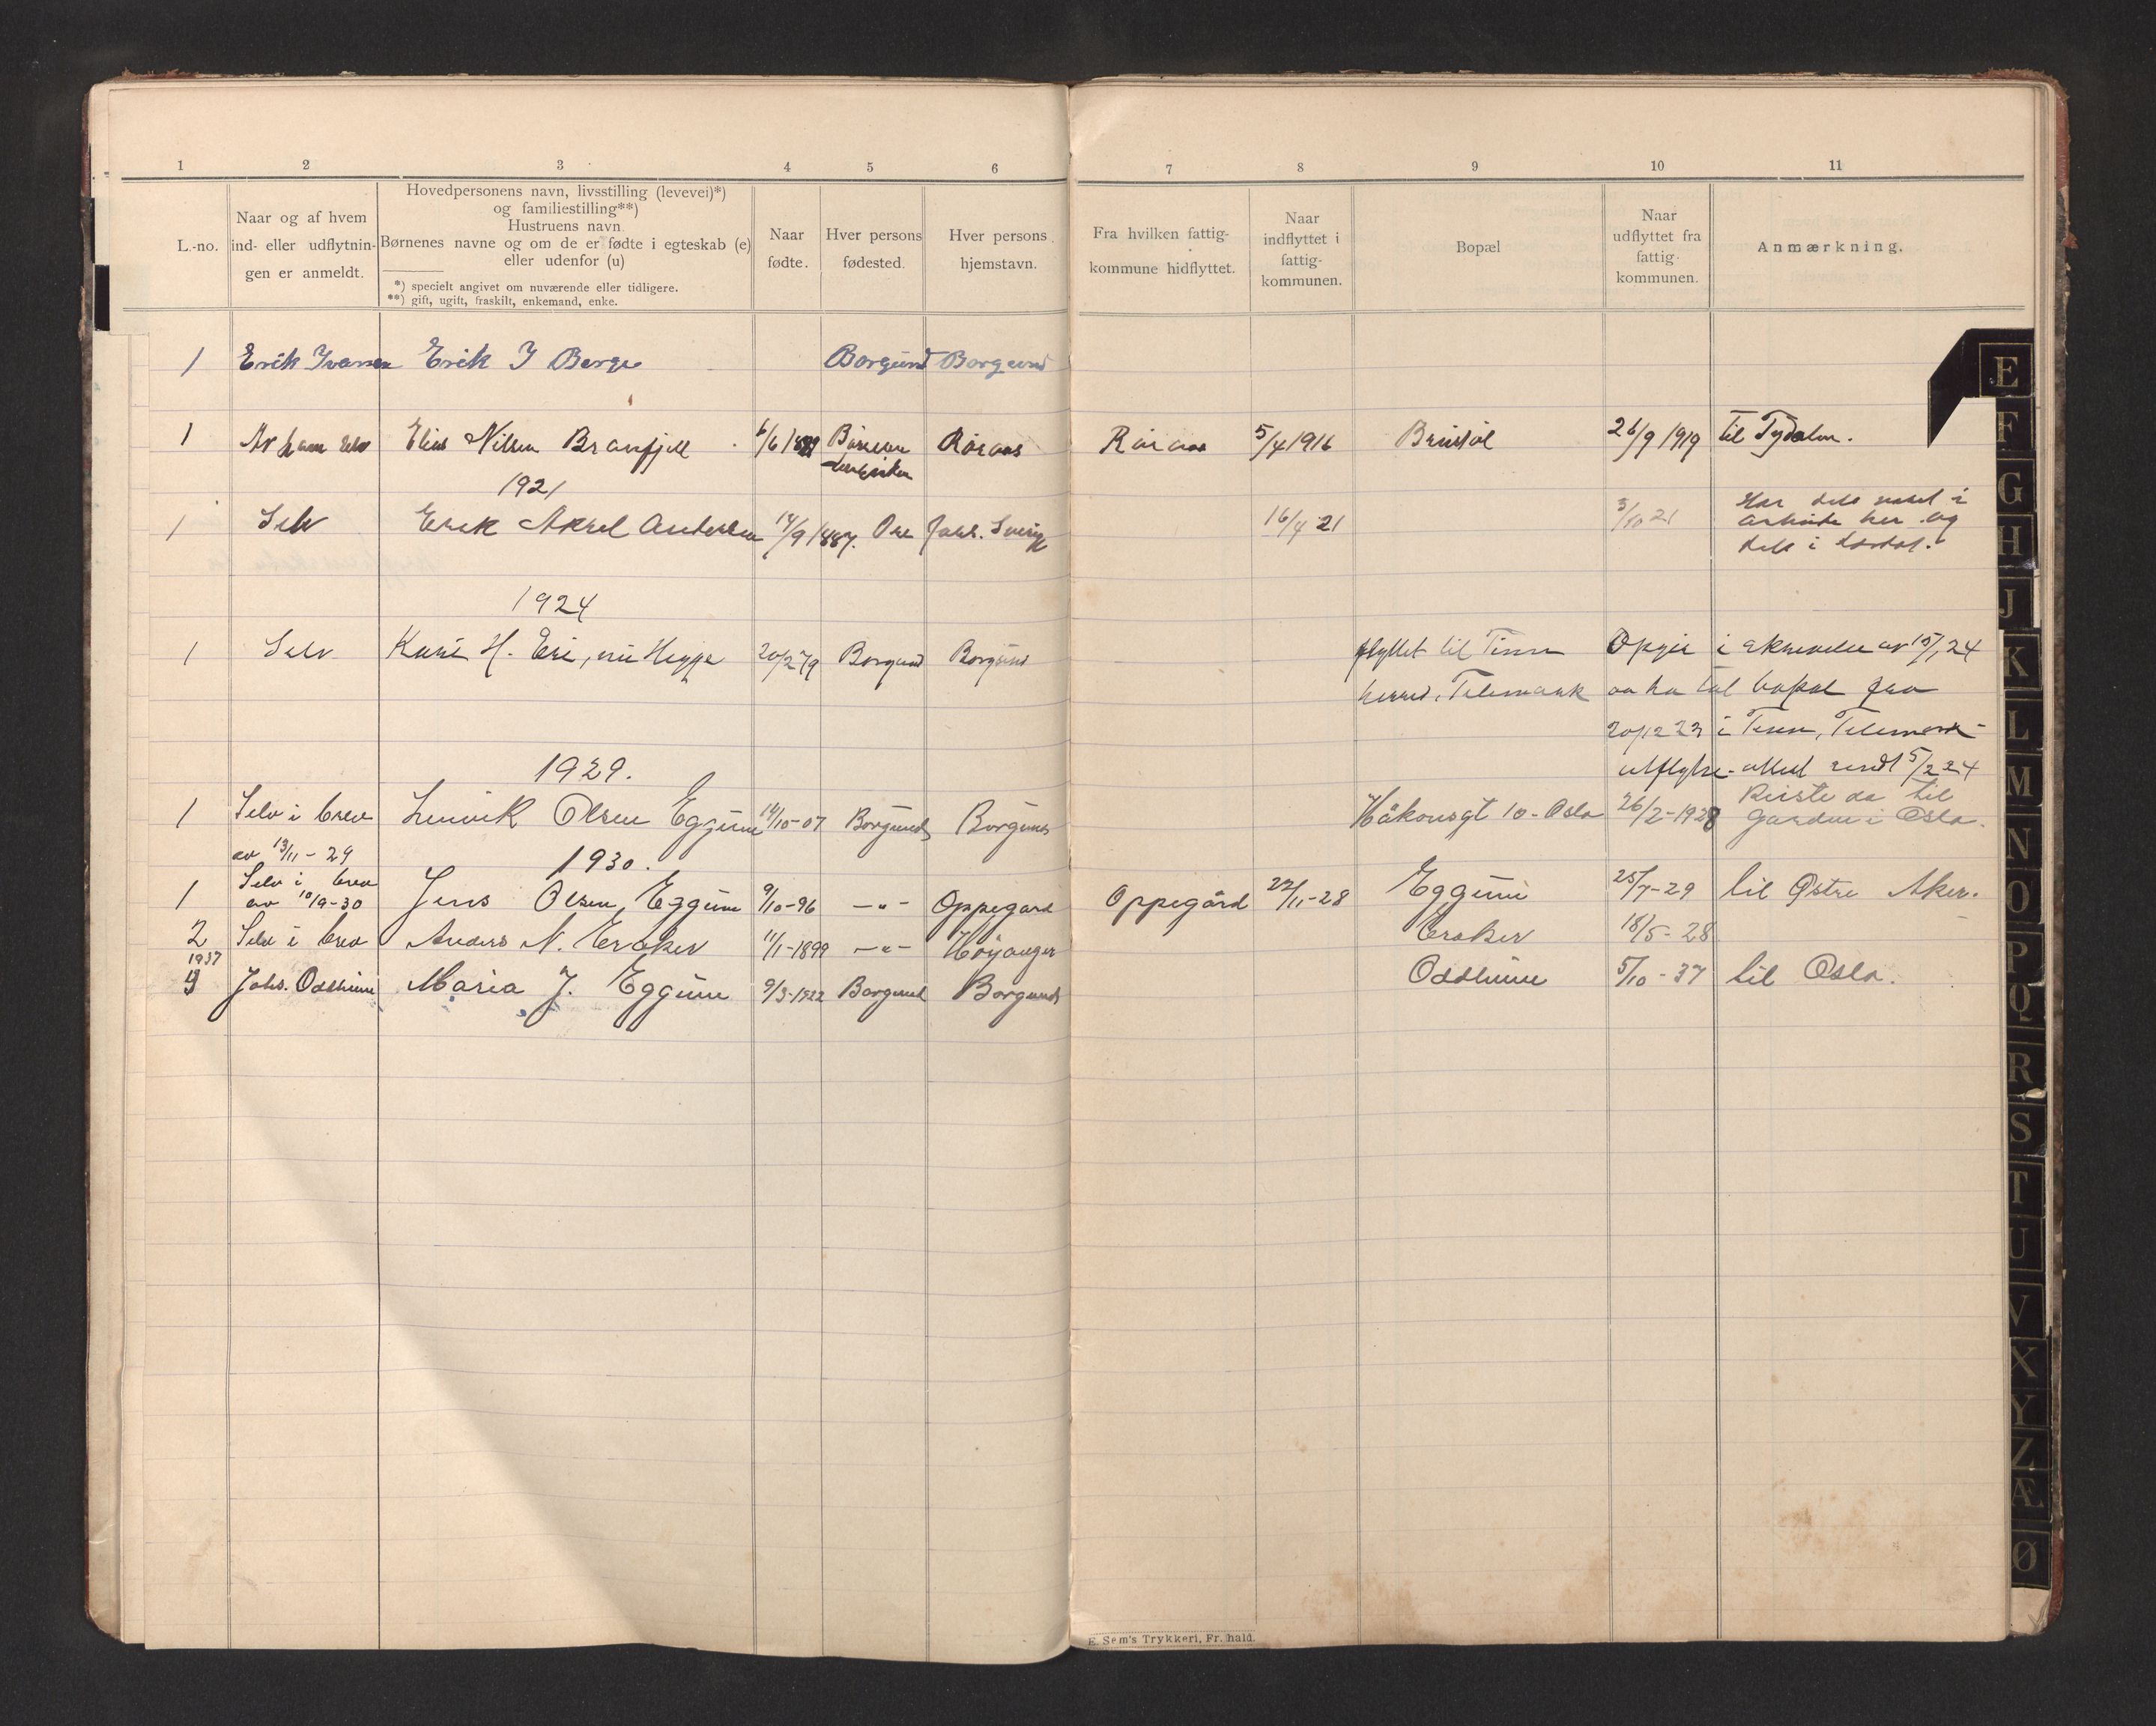 1 2 3 4 5 6 7 8 9 10 11
L.-no.
Naar og af hvem
ind- eller udflytnin-
gen er anmeldt.
Hovedpersonens navn, livsstilling (levevei)*)
og familiestilling**)
Hustruens navn.
Børnenes navne og om de er fødte i egteskab (e)
eller udenfor (u)
*) specielt angivet om nuværende eller tidligere.
**) gift, ugift, fraskilt, enkemand, enke.
Naar
fødte.
Hver persons
fødested.
Hver persons
hjemstavn.
Fra hvilken fattig-
kommune hidflyttet.
Naar
indflyttet i
fattig-
kommunen.
Bopæl
Naar
udflyttet fra
fattig-
kommunen.
Anmærkning.
1 Erik Ivarsen Erik I Berge Borgund Borgund
1 Av ham selv Elias Nilsen Branfjell 6/6 Røraas Røraas 5/4 1916 26/9 1919 til Tydalen.
1921
1 Selv Erik Aksel Andersen 14/9 1887. Sverige 16/4 21 3/10 21 Har dels vært i
arbeide her og
dels i
1924
1 Selv Kari H. Eri, nu Hegge 20/2 79 Borgund Borgund flyttet til Tinn Opgir i skrivelse av 15/1 24
herred, Telemark aa ha tat bopæl fra
20/12 23 i Tinn, Telemark
utflytn. attest sendt 5/2 24
1929.
1 Selv i brev Olsen Eggum 14/10-07 Borgund Borgund Håkonsgt 10 - Oslo 26/2-1928 Reiste da til
Garden i Oslo.
av 13/11-29
1930.
1 Selv i brev
av 10/9-30 Jens Olsen Eggum 9/10-96 -"- Oppegård Oppegård 22/11-28 Eggum 25/7-29 til Østre Aker.
2 Selv i brev Anders N. Eraker 11/1-1899 -"- Høyanger Eraker 18/5-28
1937
3 Johs. Oddheim Maria J. Eggum 9/3-1922 Borgund Borgund Oddheim 5/10-37 til Oslo.
E. Sem's Trykkeri, Fr.hald.
E
F
G
H
J
K
L
M
N
O
P
Q
R
S
T
U
V
X
Y
Z
Æ
Ø